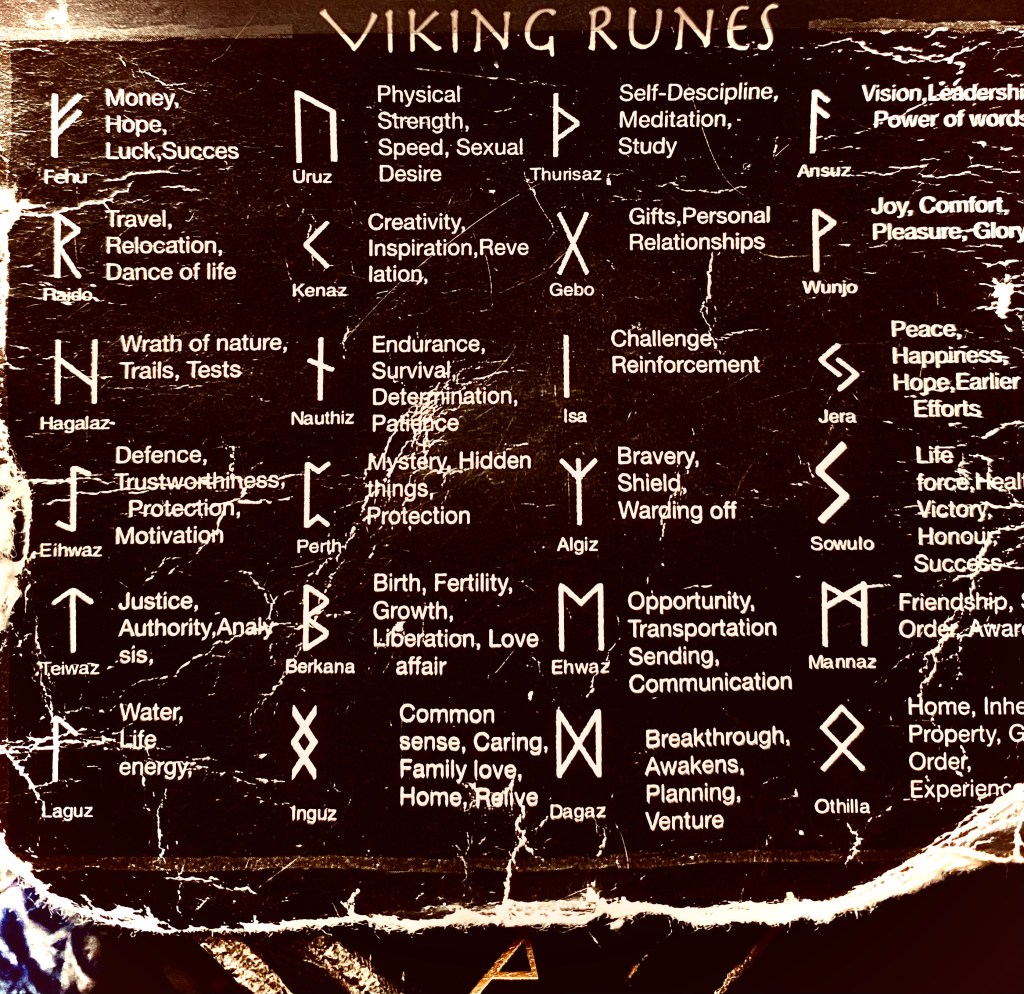 VIKING RUNES
ᚠ
Money,
Hope,
Luck,Succes
Fehu
ᚢ
Physical
Strength,
Speed, Sexual
Desire
Uruz
ᚦ
Self-Descipline,
Meditation,
Study
Thurisaz
ᚨ
Vision,Leadershi
Power of words
Ansuz
ᚱ
Travel,
Relocation,
Dance of life
Raido
ᚲ
Creativity,
Inspiration,Reve
lation,
Kenaz
ᚷ
Gifts,Personal
Relationships
Gebo
ᚹ
Joy, Comfort,
Pleasure, Glory
Wunjo
ᚺ
Wrath of nature,
Trails, Tests
Hagalaz
ᚾ
Endurance,
Survival,
Determination,
Patience
Nauthiz
ᛁ
Challenge,
Reinforcement
Isa
ᛃ
Peace,
Happiness,
Hope,Earlier
Efforts
Jera
ᛇ
Defence,
Trustworthiness,
Protection,
Motivation
Eihwaz
ᛈ
Mystery, Hidden
things,
Protection
Perth
ᛉ
Bravery,
Shield,
Warding off
Algiz
ᛊ
Life
force,Healt
Victory,
Honour,
Success
Sowulo
ᛏ
Justice,
Authority,Analy
sis,
Teiwaz
ᛒ
Birth, Fertility,
Growth,
Liberation, Love
affair
Berkana
ᛖ
Opportunity,
Transportation
Sending,
Communication
Ehwaz
ᛗ
Friendship,
Order, Awar
Mannaz
ᛚ
Water,
Life
energy,
Laguz
ᛝ
Common
sense, Caring,
Family love,
Home, Relive
Inguz
ᛞ
Breakthrough,
Awakens,
Planning,
Venture
Dagaz
ᛟ
Home, Inhe
Property, G
Order,
Experienc
Othilla